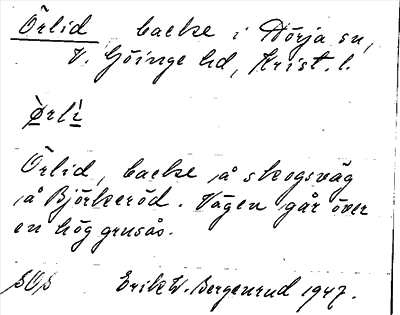 Örlid backe i Hörja sn,
V. Göinge hd, Krist. l.
Örlid, backe på skogsväg
på Björkeröd. Vägen går över
en hög grusås.
SOS Erik W. Bergenrud 1947.